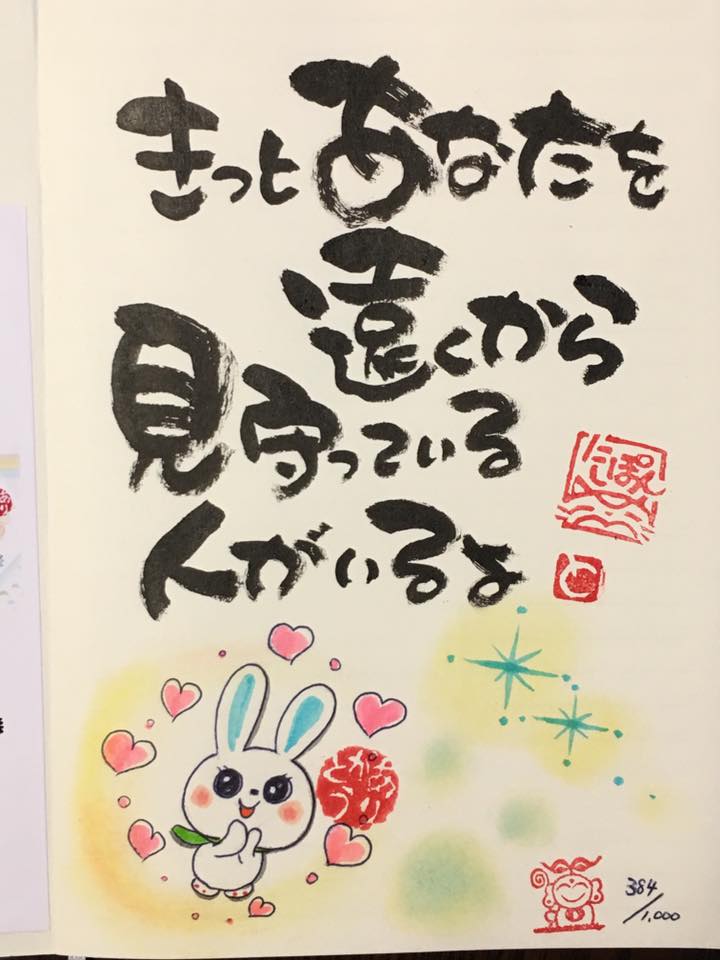 きっとあなたを
遠くから
見守っている
人がいるよ
にっぽん
384/1,000